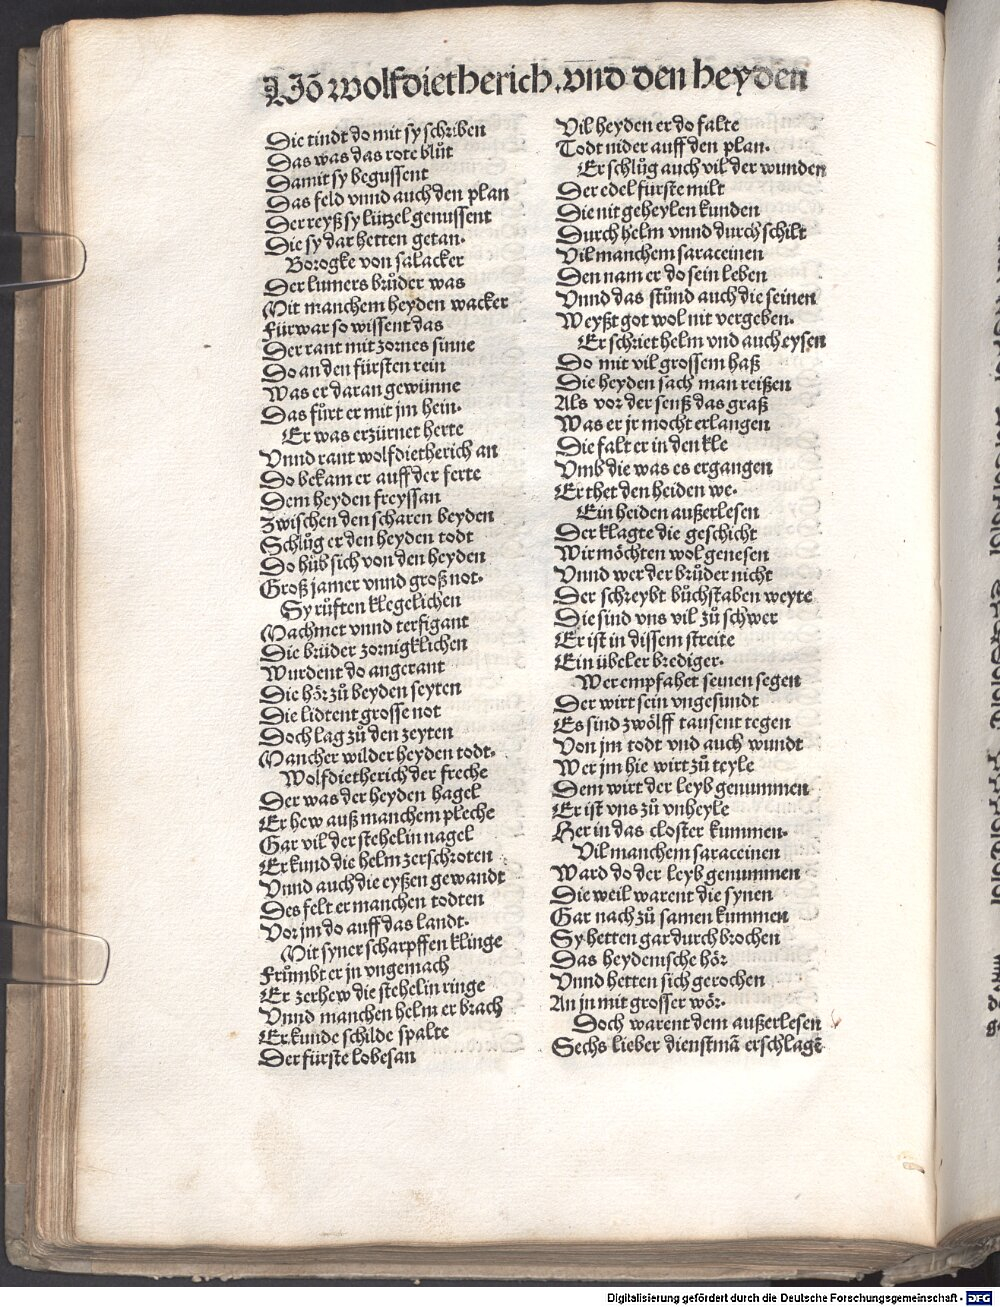 Võ wolfdietherich.vnd den heyden
Die tindt do mit sy schriben
Das was das rote blůt
Damit sy begussent
Das feld vnnd auch den plan
Der reyß sy lützel genussent
Die sy dar hetten getan.
Borogke von salacker
Der lumers brůder was
Mit manchem heyden wacker
Fürwar so wissent das
Der rant mit zornes sinne
Do an den fürsten rein
Was er daran gewünne
Das fůrt er mit jm hein.
Er was erzürnet herte
Vnnd rant wolfdietherich an
Do bekam er auff der ferte
Dem heyden freyssan
Zwischen den scharen beyden
Schlůg er den heyden todt
Do hůb sich von den heyden
Groß jamer vnnd groß not.
Sy růften klegelichen
Machmet vnnd terfigant
Die brüder zornigklichen
Wurdent do angerant
Die hör zů beyden seyten
Die lidtent grosse not
Doch lag zů den zeyten
Mancher wilder heyden todt.
Wolfdietherich der freche
Der was der heyden hagel
Er hew auß manchem pleche
Gar vil der stehelin nagel
Er kund die helm zerschroten
Vnnd auch die eyßen gewandt
Des felt er manchen todten
Vor jm do auff das landt.
Mit syner scharpffen klinge
Frůmbt er jn vngemach
Er zerhew die stehelin ringe
Vnnd manchen helm er brach
Er kunde schilde spalte
Der fürste lobesan
Vil heyden er do falte
Todt nider auff den plan.
Er schlůg auch vil der wunden
Der edel fürste milt
Die nit geheylen kunden
Durch helm vnnd durch schilt
Vil manchem saraceinen
Den nam er do sein leben
Vnnd das stůnd auch die seinen
Weyßt got wol nit vergeben.
Er schriet helm vnd auch eysen
Do mit vil grossem haß
Die heyden sach man reißen
Als vor der senß das graß
Was er jr mocht erlangen
Die falt er in den kle
Vmb die was es ergangen
Er thet den heiden we.
Ein heiden außerlesen
Der klagte die geschicht
Wir möchten wol genesen
Vnnd wer der brůder nicht
Der schreybt bůchstaben weyte
Die sind vns vil zů schwer
Er ist in dissem streite
Ein übeler brediger.
Wer empfahet seinen segen
Der wirt sein vngesundt
Es sind zwölff tausent tegen
Von jm todt vnd auch wundt
Wer jm hie wirt zů teyle
Dem wirt der leyb genummen
Er ist vns zů vnheyle
Her in das closter kummen.
Vil manchem saraceinen
Ward do der leyb genummen
Die weil warent die synen
Gar nach zů samen kummen
Sy hetten gar durch brochen
Das heydenische hör
Vnnd hetten sich gerochen
An jn mit grosser wör.
Doch warent dem außerlesen
Sechs lieber dienstmã erschlagẽ
Digitalisierung gefördert durch die Deutsche Forschungsgemeinschaft - DFG